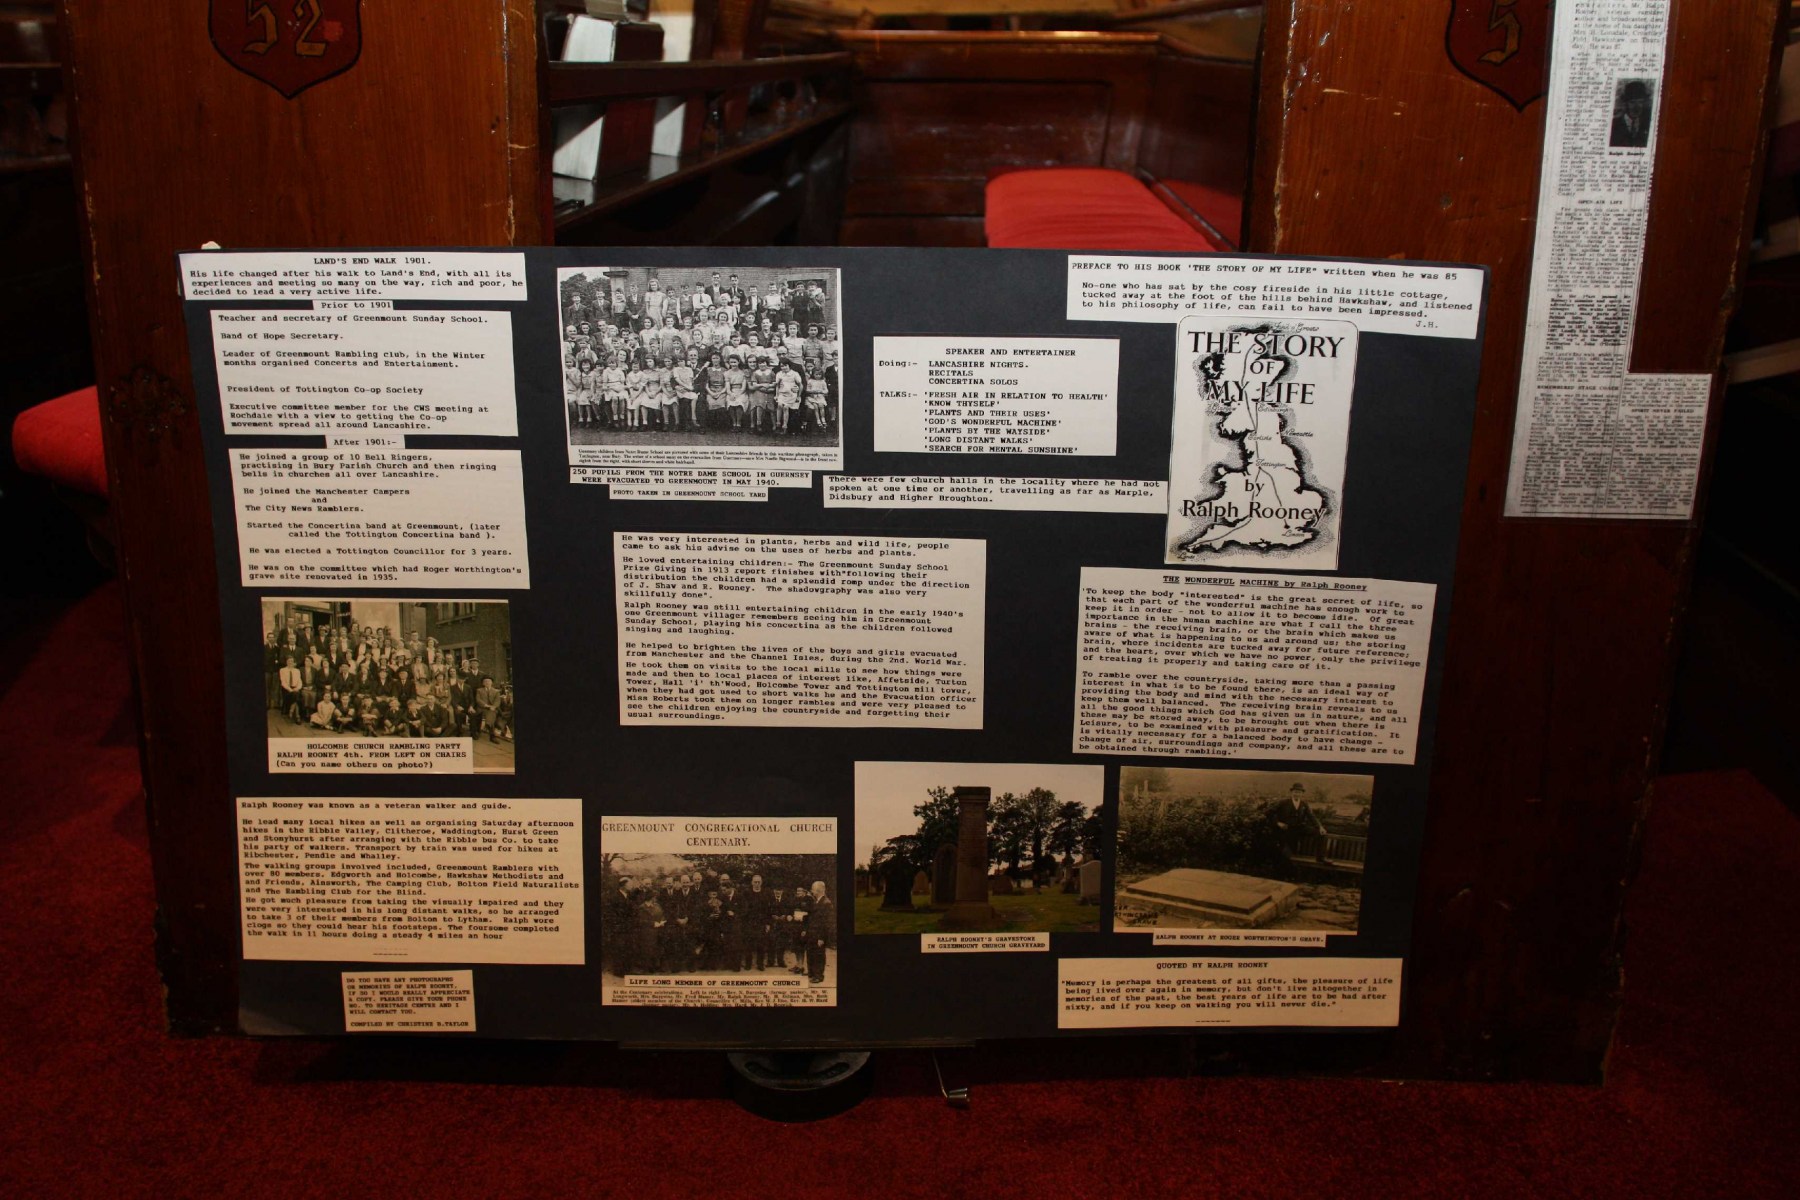 52
5
LAND'S END WALK 1901.
His life changed after his walk to Land's End, with all its
experiences and meeting so many on the way, rich and poor, he
decided to lead a very active life.
Prior to 1901
Teacher and secretary of Greenmount Sunday School.
Band of Hope Secretary.
Leader of Greenmount Rambling club, in the Winter
months organised Concerts and Entertainment.
President of Tottington Co-op Society
Executive committee member for the CWS meeting at
Rochdale with a view to getting the Co-op
movement spread all around Lancashire.
After 1901:-
He joined a group of 10 Bell Ringers,
practising in Bury Parish Church and then ringing
bells in churches all over Lancashire.
He joined the Manchester Campers
and
The City News Ramblers.
Started the Concertina band at Greenmount, (later
called the Tottington Concertina band ).
He was elected a Tottington Councillor for 3 years.
He was on the committee which had Roger Worthington's
grave site renovated in 1935.
HOLCOMBE CHURCH RAMBLING PARTY
RALPH ROONEY 4th. FROM LEFT ON CHAIRS
(Can you name others on photo?)
Ralph Rooney was known as a veteran walker and guide.
He lead many local hikes as well as organising Saturday afternoon
hikes in the Ribble Valley, Clitheroe, Waddington, Hurst Green
and Stonyhurst after arranging with the Ribble bus Co. to take
his party of walkers. Transport by train was used for hikes at
Ribchester, Pendle and Whalley.
The walking groups involved included, Greenmount Ramblers with
over 80 members, Edgworth and Holcombe, Hawkshaw Methodists and
and Friends, Ainsworth, The Camping Club, Bolton Field Naturalists
and The Rambling Club for the Blind.
He got much pleasure from taking the visually impaired and they
were very interested in his long distant walks, so he arranged
to take 3 of their members from Bolton to Lytham. Ralph wore
clogs so they could hear his footsteps. The foursome completed
the walk in 11 hours doing a steady 4 miles an hour
DO YOU HAVE ANY PHOTOGRAPHS
OR MEMORIES OF RALPH ROONEY,
IF SO I WOULD REALLY APPRECIATE
A COPY. PLEASE GIVE YOUR PHONE
NO. TO HERITAGE CENTRE AND I
WILL CONTACT YOU.
COMPILED BY CHRISTINE B.TAYLOR
250 PUPILS FROM THE NOTRE DAME SCHOOL IN GUERNSEY
WERE EVACUATED TO GREENMOUNT IN MAY 1940.
PHOTO TAKEN IN GREENMOUNT SCHOOL YARD
SPEAKER AND ENTERTAINER
Doing:- LANCASHIRE NIGHTS.
RECITALS
CONCERTINA SOLOS
TALKS:- 'FRESH AIR IN RELATION TO HEALTH'
'KNOW THYSELF'
'PLANTS AND THEIR USES'
'GOD'S WONDERFUL MACHINE'
'PLANTS BY THE WAYSIDE'
'LONG DISTANT WALKS'
'SEARCH FOR MENTAL SUNSHINE'
There were few church halls in the locality where he had not
spoken at one time or another, travelling as far as Marple,
Didsbury and Higher Broughton.
He was very interested in plants, herbs and wild life, people
came to ask his advise on the uses of herbs and plants.
He loved entertaining children:- The Greenmount Sunday School
Prize Giving in 1913 report finishes with"following their
distribution the children had a splendid romp under the direction
of J. Shaw and R. Rooney. The shadowgraphy was also very
skillfully done".
Ralph Rooney was still entertaining children in the early 1940's
one Greenmount villager remembers seeing him in Greenmount
Sunday School, playing his concertina as the children followed
singing and laughing.
He helped to brighten the lives of the boys and girls evacuated
from Manchester and the Channel Isles, during the 2nd. World War.
He took them on visits to the local mills to see how things were
made and then to local places of interest like, Affetside, Turton
Tower, Hall 'i' th'Wood, Holcombe Tower and Tottington mill tower,
when they had got used to short walks he and the Evacuation officer
Miss Roberts took them on longer rambles and were very pleased to
see the children enjoying the countryside and forgetting their
usual surroundings.
GREENMOUNT CONGREGATIONAL CHURCH
CENTENARY.
LIFE LONG MEMBER OF GREENMOUNT CHURCH
PREFACE TO HIS BOOK 'THE STORY OF MY LIFE" written when he was 85
No-one who has sat by the cosy fireside in his little cottage,
tucked away at the foot of the hills behind Hawkshaw, and listened
to his philosophy of life, can fail to have been impressed.
J.H.
THE STORY
OF
MY LIFE
by
Ralph Rooney
THE WONDERFUL MACHINE by Ralph Rooney
'To keep the body "interested" is the great secret of life, so
that each part of the wonderful machine has enough work to
keep it in order - not to allow it to become idle. Of great
importance in the human machine are what I call the three
brains - the receiving brain, or the brain which makes us
aware of what is happening to us and around us; the storing
brain, where incidents are tucked away for future reference;
and the heart, over which we have no power, only the privilege
of treating it properly and taking care of it.
To ramble over the countryside, taking more than a passing
interest in what is to be found there, is an ideal way of
providing the body and mind with the necessary interest to
keep them well balanced. The receiving brain reveals to us
all the good things which God has given us in nature, and all
these may be stored away, to be brought out when there is
Leisure, to be examined with pleasure and gratification. It
is vitally necessary for a balanced body to have change -
change of air, surroundings and company, and all these are to
be obtained through rambling.'
RALPH ROONEY'S GRAVESTONE
IN GREENMOUNT CHURCH GRAVEYARD
RALPH ROONEY AT ROGER WORTHINGTON'S GRAVE.
QUOTED BY RALPH ROONEY
"Memory is perhaps the greatest of all gifts, the pleasure of life
being lived over again in memory, but don't live altogether in
memories of the past, the best years of life are to be had after
sixty, and if you keep on walking you will never die."
Ralph Rooney
OPEN-AIR LIFE